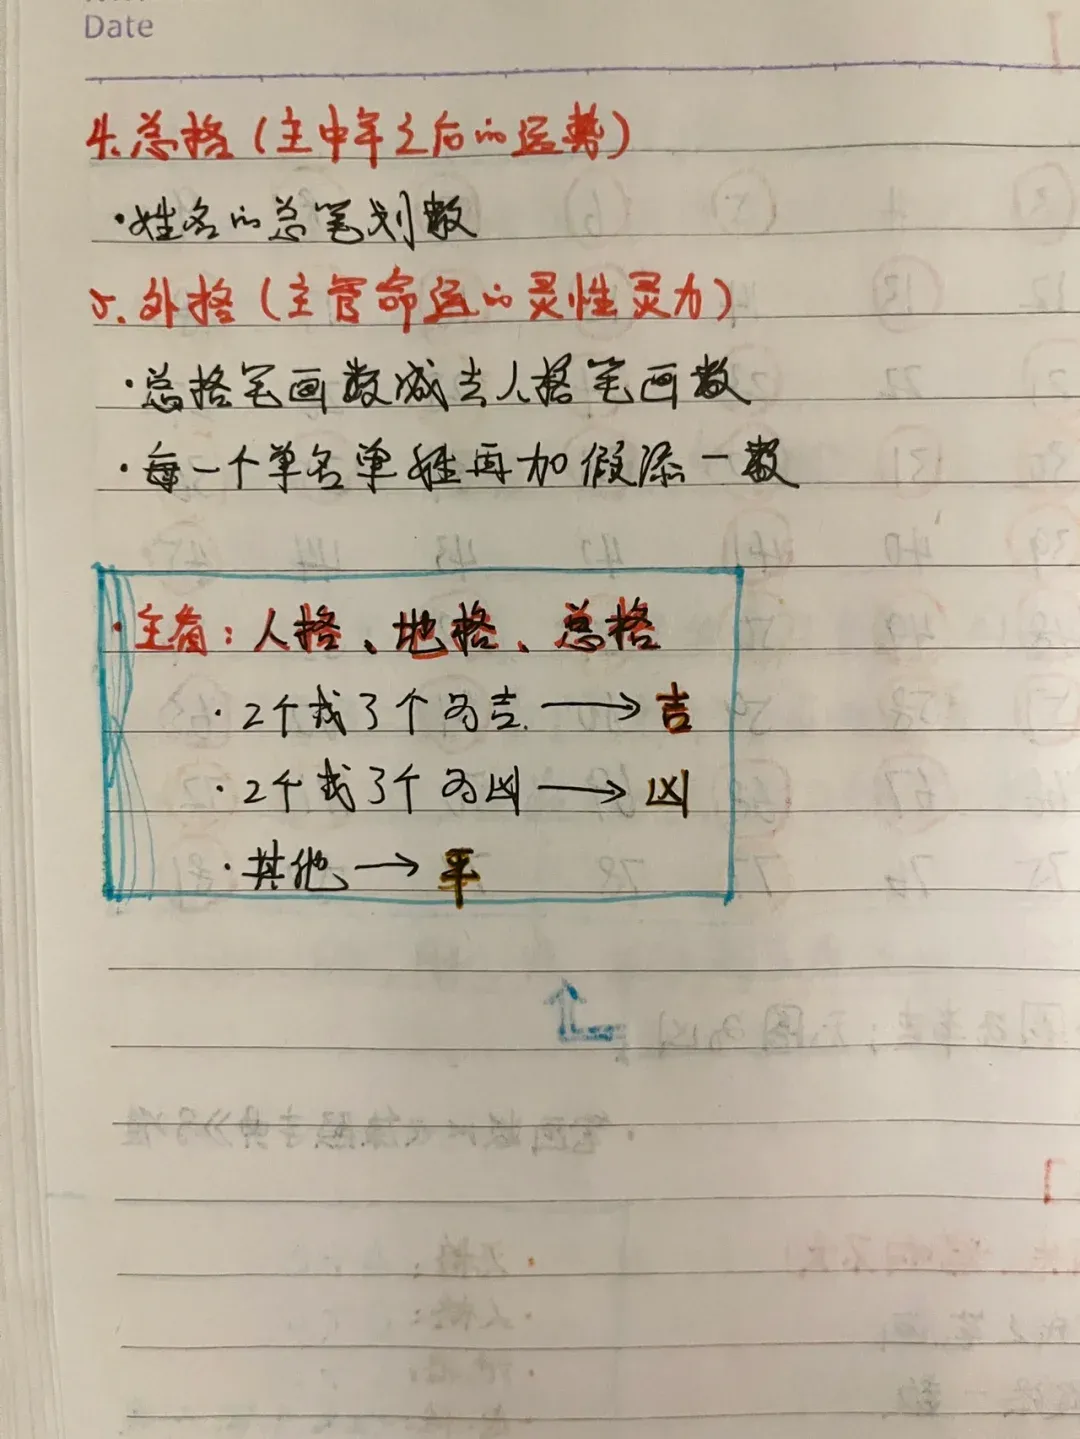 Date
4.总格(主中年之后的运势)
·姓名的总笔划数
5.外格(主管命运的灵性灵力)
·总格笔画数减去人格笔画数
·每一个单名单姓再加假添一数
·主看:人格、地格、总格
·2个或3个为吉.→吉
·2个或3个为凶→凶
·其他→平